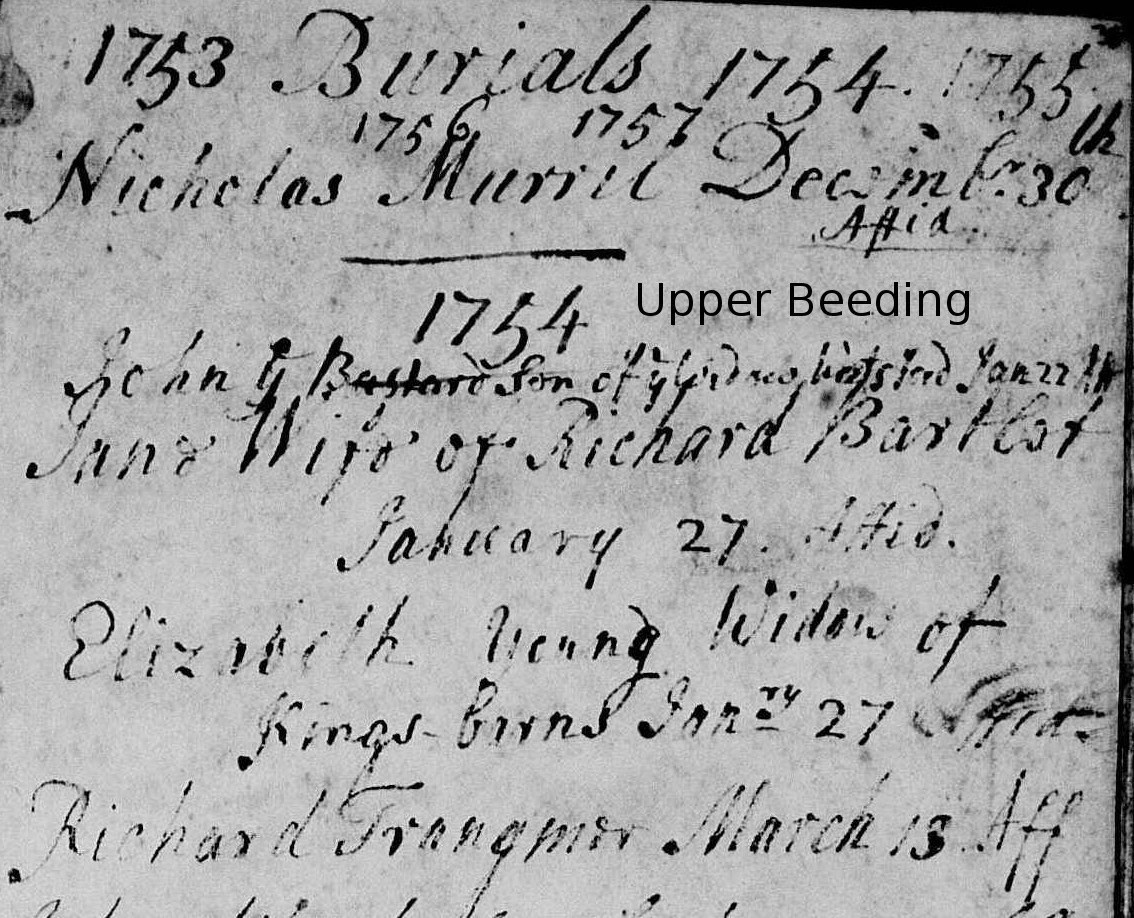 1753 Burials 1754. 1755
1756 1757
Nicholas Murril Decembr. 30th
Affid.
1754
Upper Beeding
John ye Bastard Son of ye Jan 22
Jane Wife of Richard Bartlet
January 27. Affid.
Elizabeth Young Widow of
Kings-barns Janry 27 Affid.
Richard Trangmer March 13 Aff